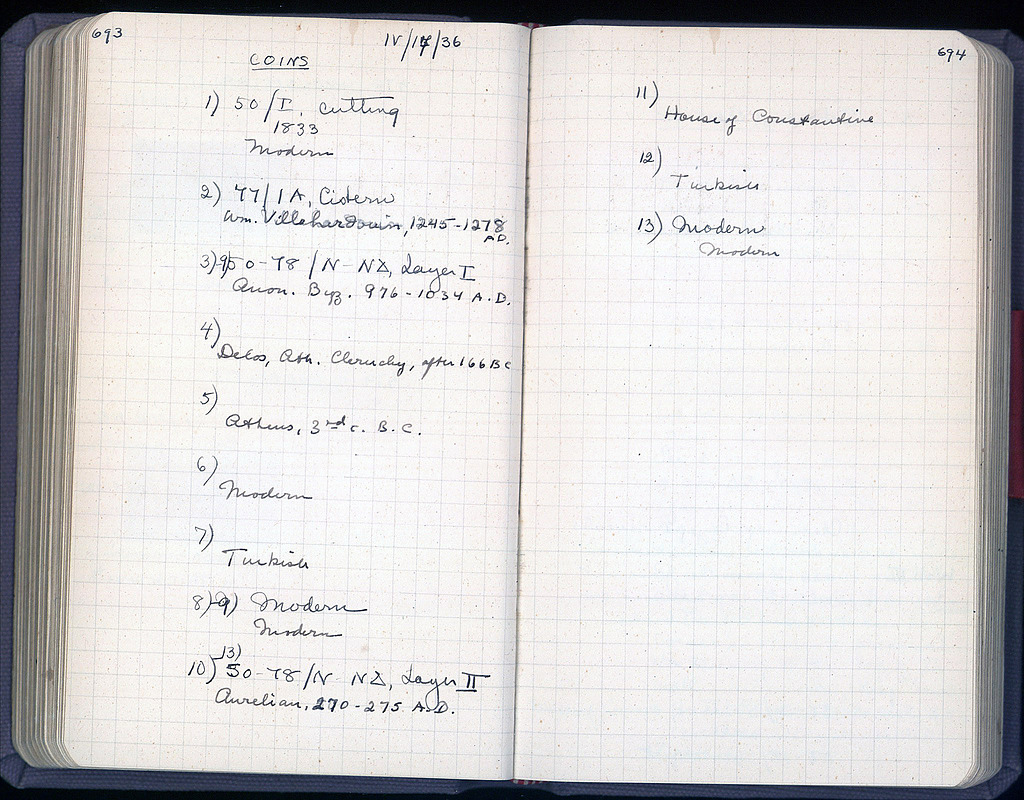 693
IV/17/36
COINS
1) 50/I, cutting
1833
Modern
2) 77/1A, Cistern
Wm. Villehardouin, 1245-1278
A.D.
3)-9) 50-78/N-NΔ, Layer I
Anon. Byz. 976-1034 A.D.
4)
Delos, Ath. Cleruchy, after 166 B C
5)
Athens, 3rd c. B.C.
6)
Modern
7)
Turkish
8)-9) Modern
Modern
13)
10) 50-78/N-NΔ, Layer II
Aurelian, 270-275 A.D.
694
11)
House of Constantine
12)
Turkish
13) Modern
Modern